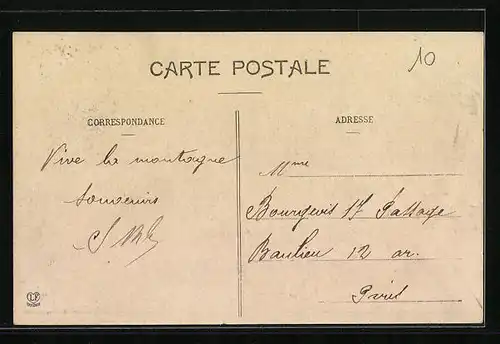 10
CARTE POSTALE
CORRESPONDANCE
ADRESSE
Vive la montagne
souvenirs
Mme
Bourgeois 17 Passage
Baulieu 12 ar.
Paris